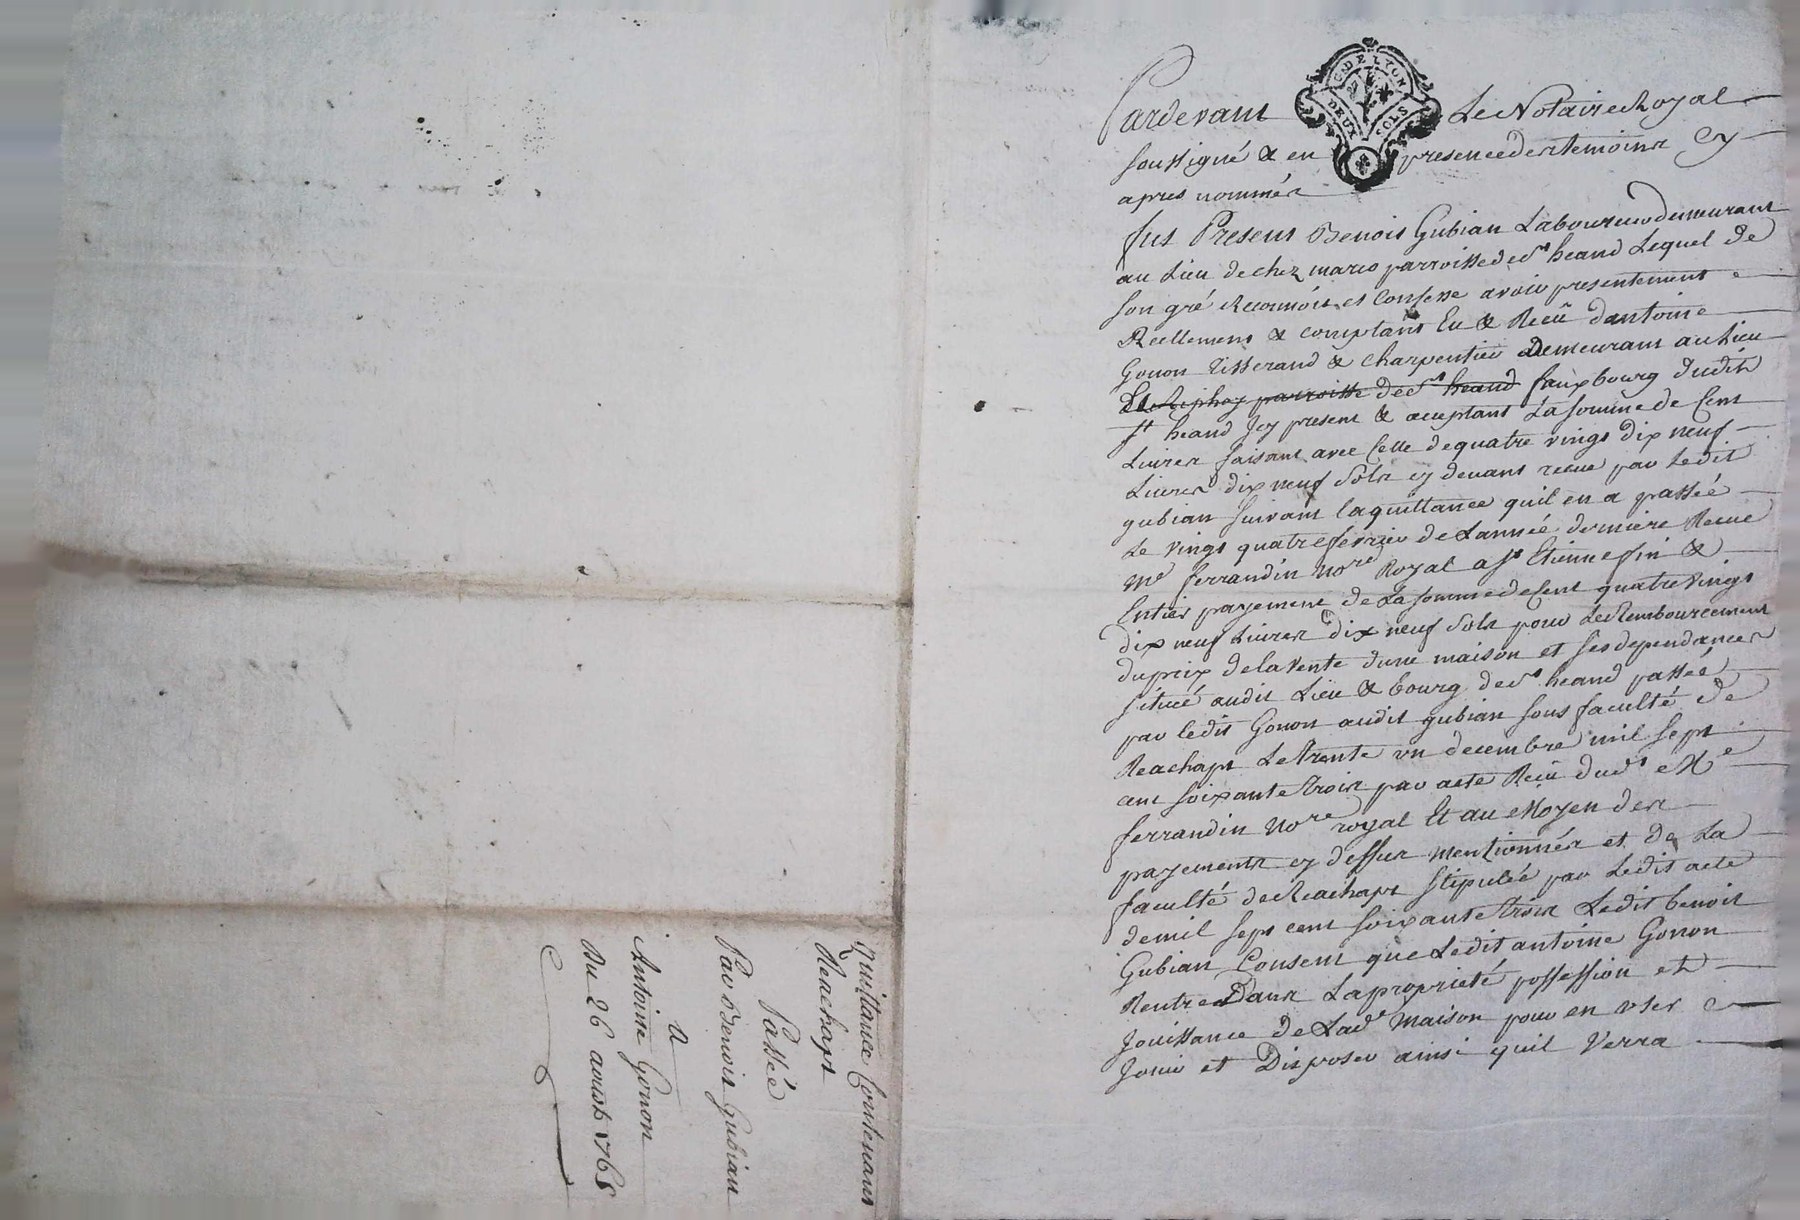 G. DE LYON
DEUX SOLS
Pardevant Le Notaire Royal
soussigné & en presence des temoins cy
apres nommés
fut Present Benoit Gubian Laboureur demeurant
au Lieu de chez marco parroisse de st heand Lequel de
son gré Reconnoit et Confesse avoir presentement
Reellement & comptant Eu & Recû dantoine
Gonon tisserand & charpentier Demeurant au Lieu
parroisse de st heand fauxbourg dudit
st heand Jcy present & acceptant La somme de Cent
Livres faisant avec Celle de quatre vingt dix neuf
Livres dix neuf Sols cy devant recue par Ledit
gubian suivant la quittance quil en a passée
Le vingt quatre fevrier de Lannée derniere Recue
me ferrandin nore Royal a st Etienne fin &
Entier payement de La somme de Cent quatre vingt
dix neuf Livres dix neuf Sols pour Le Remboursement
du prix de la vente dune maison et ses dependances
situeé audit Lieu & bourg de st heand passeé
par ledit Gonon audit gubian sous faculté de
Reachapt Le trente un decembre mil sept
cent soixante trois par acte Recû dudt Me
ferrandin Nore royal Et au Moyen des
payements cy dessus mentionnés et de La
faculté de Reachapt stipulée par Ledit acte
de mil sept cent soixante trois Ledit benoit
Gubian Consent que Ledit antoine Gonon
Rentre Dans La proprieté possession et
Jouissance de Lade maison pour en user
Jouir et Disposer ainsi quil Verra
Quittance Contenant
Reachapt
Passée
Par Benoit Gubian
a
Antoine Gonon
Du 26 aoust 1765